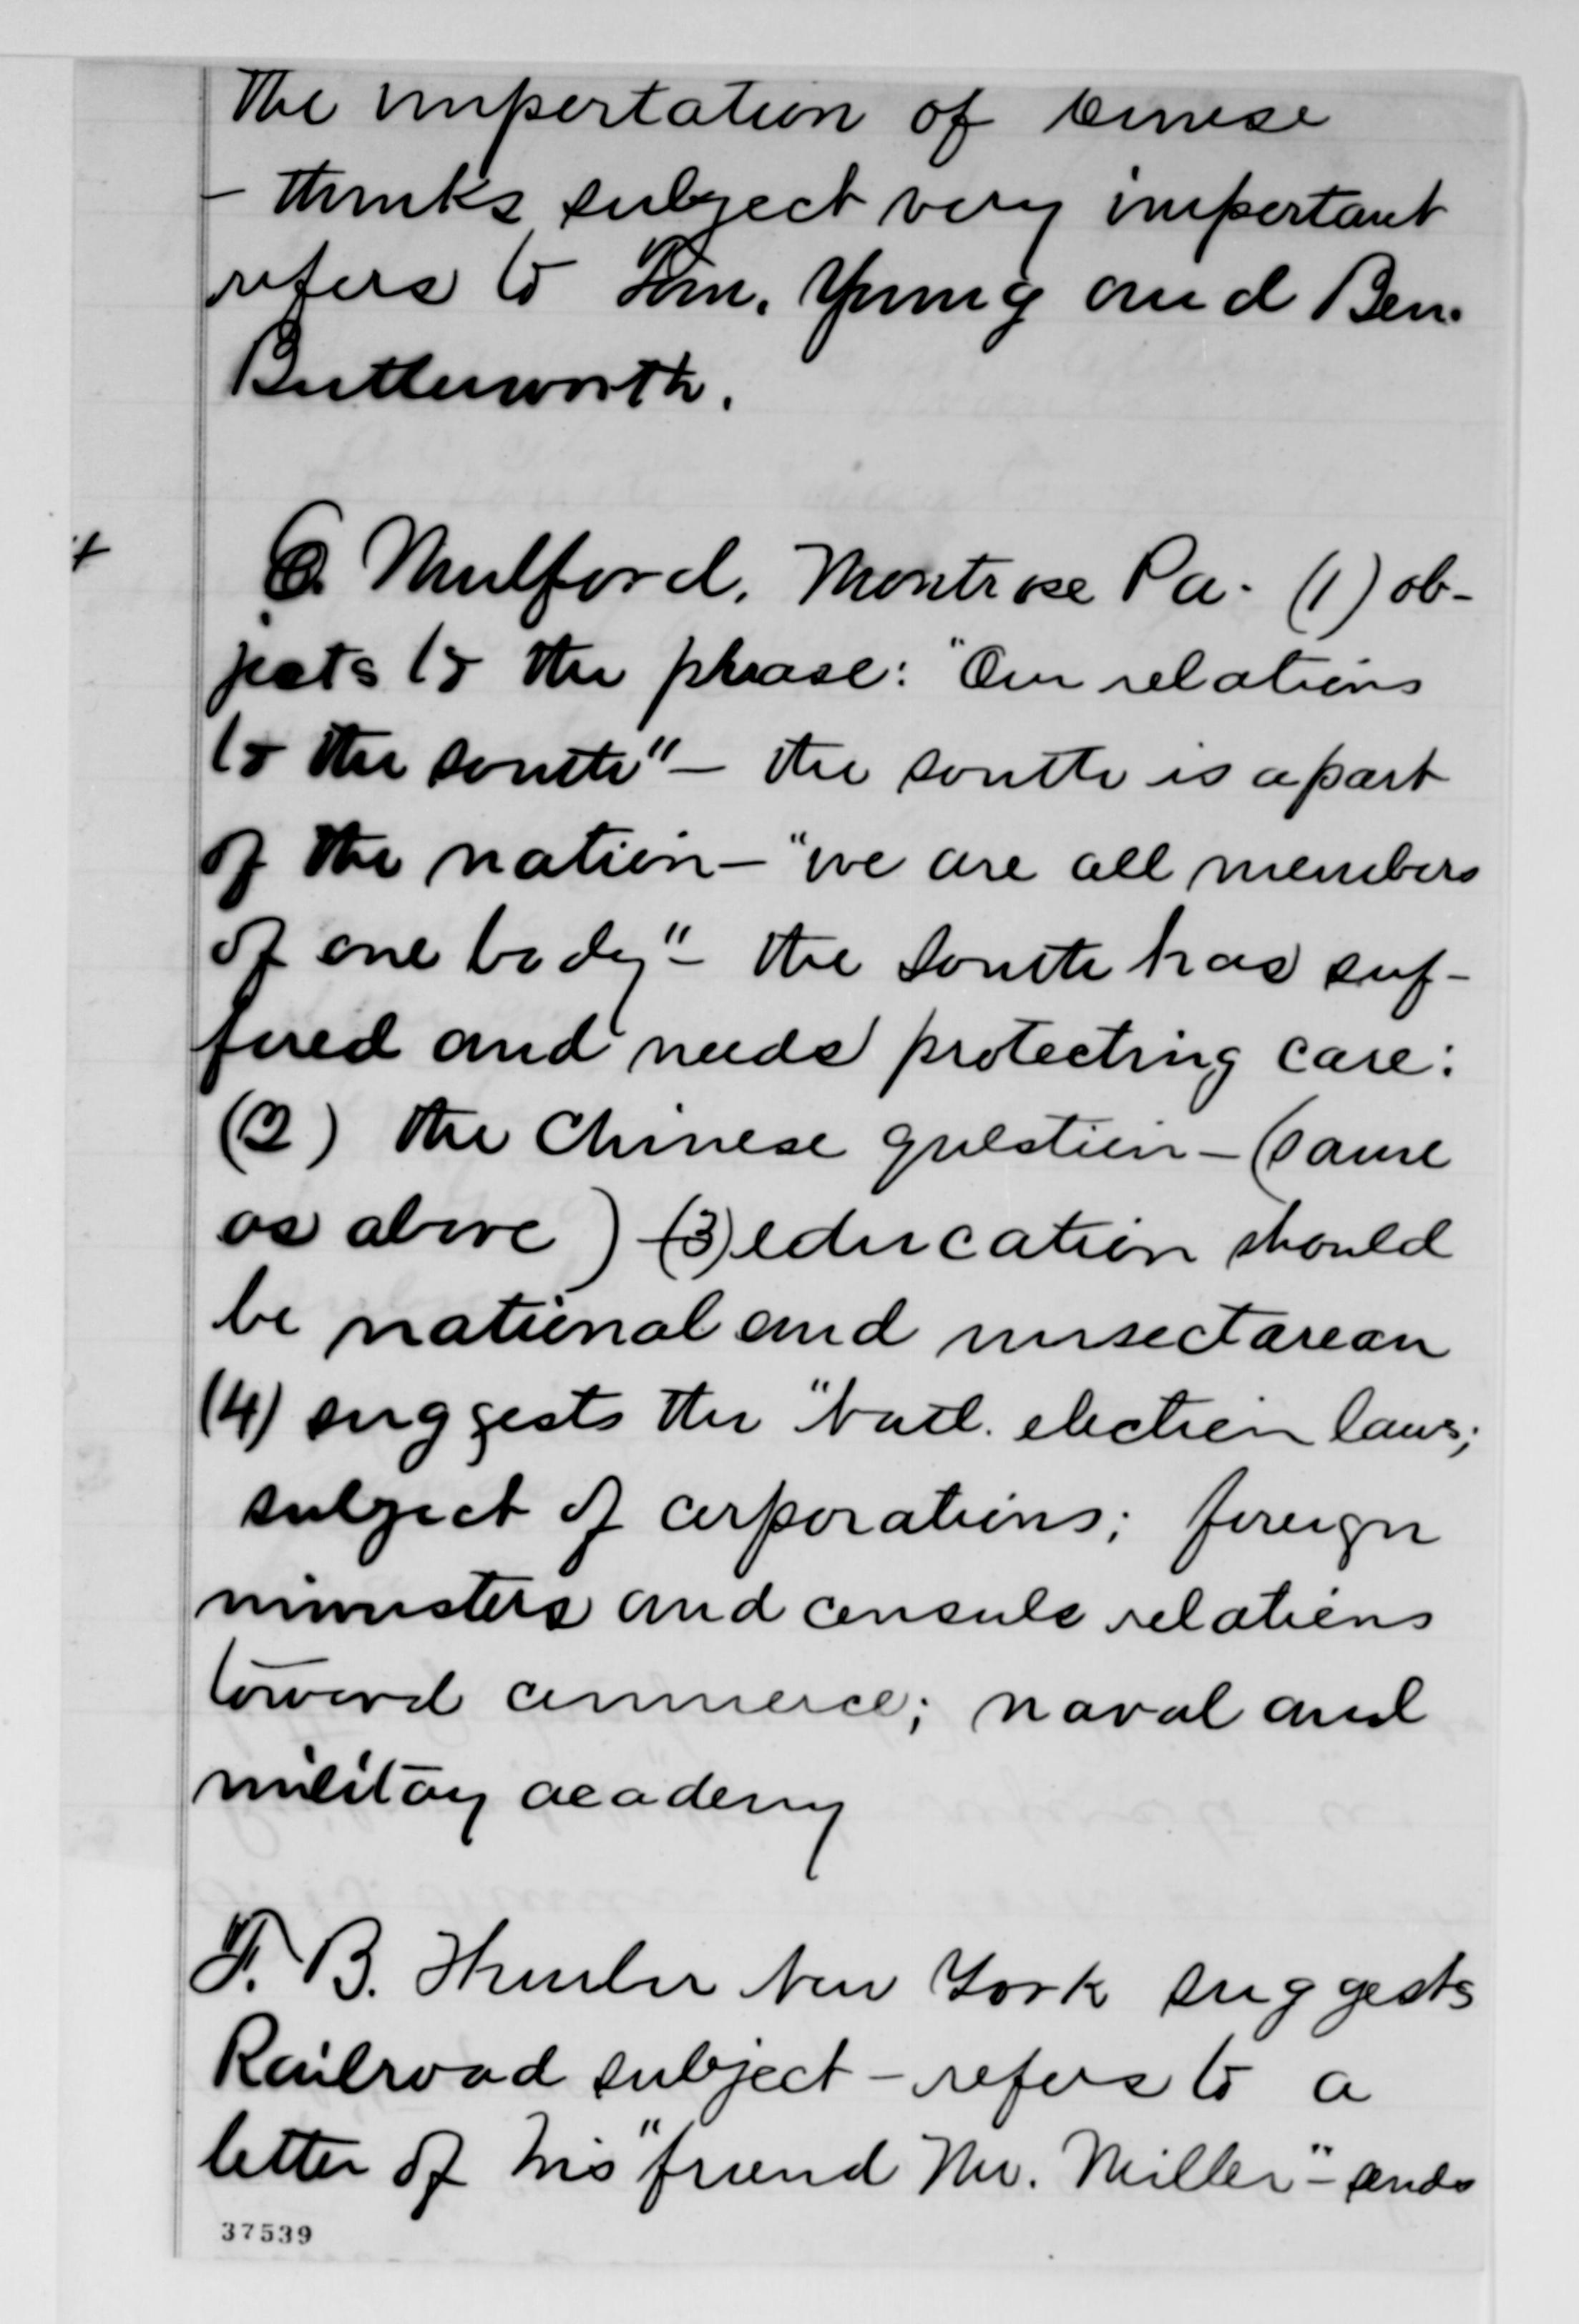 the importation of Cinese
- thinks subject very important
refers to Tom. Young and Ben.
Butterworth.
Mulford. Montrose Pa. (1) ob-
jects to the phrase: "Our relations
to the south" - the south is a part
of the nation - "we are all members
of one body" - the South has suf-
fered and needs protecting care:
(2) the Chinese question - (same
as above) (3) education should
be national and unsectarean
(4) suggests the "Natl. election laws;
subject of corporations; foreign
ministers and consuls relations
toward commerce; naval and
military academy
F. B. Thurber New York suggests
Railroad subject - refers to a
letter of his "friend Mr. Miller" - ends
37539